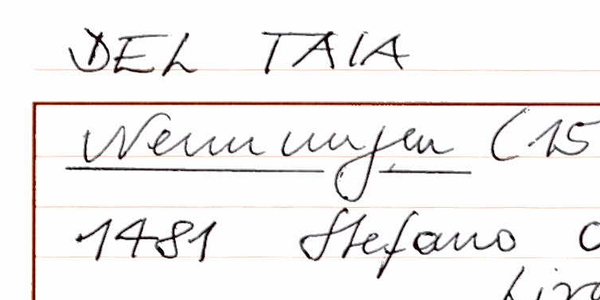 DEL TAIA
Nennungen (15
1481 Stefano